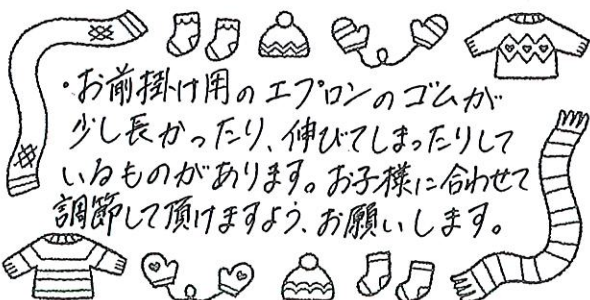 ・お前掛け用のエプロンのゴムが
少し長かったり、伸びてしまったりして
いるものがあります。お子様に合わせて
調節して頂けますよう、お願いします。